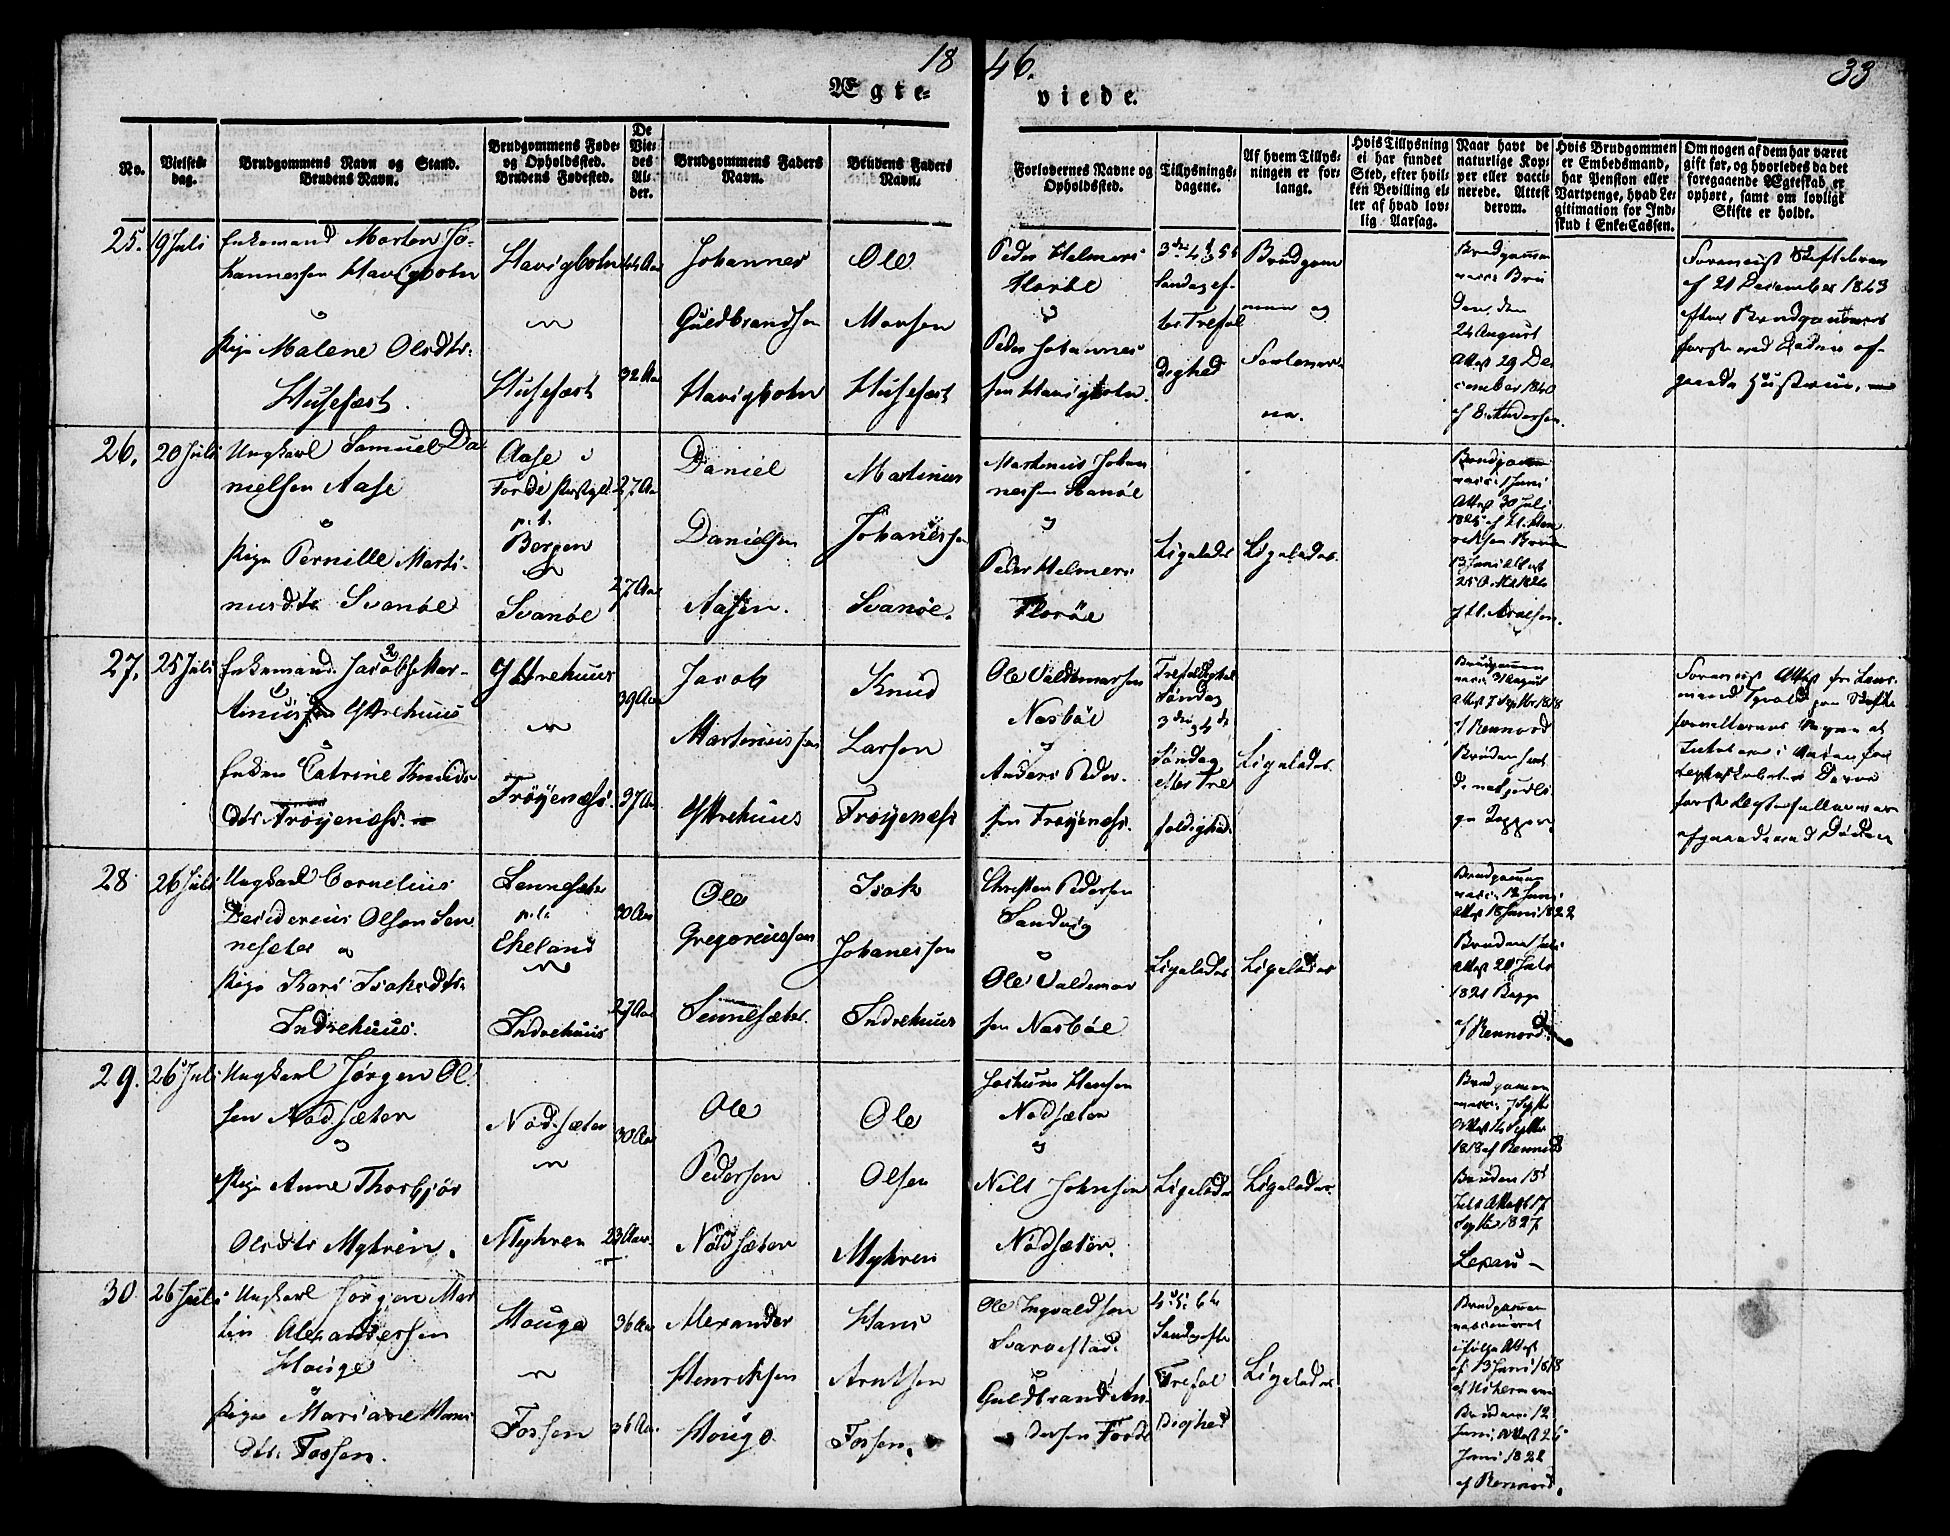 18 46. 33
Ægte- viede.
No.
Vielses-
dag.
Brudgommens Navn og Stand.
Brudens Navn.
Brudgommens Føde-
og Opholdssted.
Brudens Fødested.
De
Vie-
des
Al-
der.
Brudgommens Faders
Navn.
Brudens Faders
Navn.
Forlovernes Navne og
Opholdssted.
Tillysnings-
dagene.
Af hvem Tillys-
ningen er for-
langt.
Hvis Tillysning
ei har fundet
Sted, efter hvil-
ken Bevilling el-
ler af hvad lov-
lig Aarsag.
Naar havt de
naturlige Kop-
per eller vacci-
nerede. Attest
derom.
Hvis Brudgommen
er Embedsmand,
har Pension eller
Vartpenge, hvad Le-
gitimation for Ind-
skud i EnkeCassen.
Om nogen af dem har været
gift før, og hvorledes da det
foregaaende Ægteskab er
ophørt, samt om lovligt
Skifte er holdt.
25.
19 Juli
Enkemand Morten Jo-
hannessen Havigbotn
o
Pige Malene Olsdtr.
Husefæst.
Havigbotn
Husefæst
44 Aar
32 Aar
Johannes
Guldbrandsen
Havigbotn
Ole
Monsen
Husefæst
Peder Helmers
Florøe
o
Peder Johannes
sen Havigbotn.
3die 4 5te
Søndag ef-
ter Trefol
dighed
Brudgom
men og
Forlover-
ne.
Brudgommen
vacc. Bru
den, den
24 August
Attest 29 De
cember 1840
af E. Andersen.
Foreviist Skiftebrev
af 21 December 1843
efter Brudgommens
første ved Døden af-
gangne Hustrue.
26.
20 Juli
Ungkarl Samuel Da-
nielsen Aase
o
Pige Pernille Marti-
nusdtr Svanøe
Aase i
Førde Præstegield
p.t.
Bergen
Svanøe
27 Aar
27 Aar
Daniel
Danielsen
Aasen.
Martinus
Johannessen
Svanøe.
Martinus Johan
nessen Svanøe
o
Peder Helmers
Florøe
Ligeledes
Ligeledes.
Brudgommen
vacc. 1 Juni
Attest 30 Juli
27.
25 Juli
Enkemand Jacob Mar-
tinussen Yttrehuus
o
Enken Catrine Knuds-
dtr Trøyenæss.
Yttrehuus
Trøyenæss.
39 Aar
37 Aar
Jacob
Martinussen
Yttrehuus
Knud
Larsen
Trøyenæss
Ole Valdemarsen
Nasbøe
o
Anders Peder-
sen Trøyenæss.
Trefoldighed
Søndag
3die 4de
Søndag
efter Tre
foldighed.
Ligeledes.
Brudgommen
vacc. 31 August
Attest 7 Septbr 1818
af Rennord
Bruden havt
de naturli-
ge Kopper.
Foreviist Attest fra Lens-
28
26 Juli
Ungkarl Cornelius
Desiderius Olsen Sen
nesæter o
Pige Kari Isaksdtr.
Indrehuus.
Sennesæter
p.t.
Ekeland
Indrehuus
30 Aar
27 Aar
Ole
Gregoriussen
Sennesæter.
Isak
Johanessen
Indrehuus
Christen Pedersen
Sandvig
o
Ole Valdemar
sen Nasbøe
Ligeledes
Ligeledes
Brudgommen
vacc. 13 Juni
Attest 18 Juni 1822
Bruden Juli
Attest 20 Juli
1821 Begge
af Rennord.
29.
26 Juli
Ungkarl Jørgen Ol-
sen Nødsæter
o
Pige Anne Thorbjør
Olsdtr Myhren.
Nødsæter
Myhren
30 Aar
23 Aar.
Ole
Pedersen
Nødsæter
Ole
Olsen
Myhren
Jochum Hansen
Nødsæter
og
Nils Johnsen
Nødsæter.
Ligeledes
Ligeledes.
Brudgommen
vacc. 7 Septbr
Attest 14 Septbr
1818 af Rennord
Bruden 15
Juli Attest 17
Septbr 1827
30
26 Juli
Ungkarl Jørgen Mar
tin Alexandersen
Houge
o
Pige Mariane Hans
dtr. Fossen.
Houge
Fossen
36 Aar
36 Aar.
Alexander
Henriksen
Houge
Hans
Arntsen
Fossen.
Ole Ingvaldsen
Svarestad.
o
Guldbrand An-
dersen Førde
4. 5. 6te
Søndag efter
Trefol
dighed
Ligeledes
Brudgommen
vaccineret
ifølge Attest
af 13 Juni 1818
Bruden 12
Juni, Attest 26
Juni 1822
af Rennord.